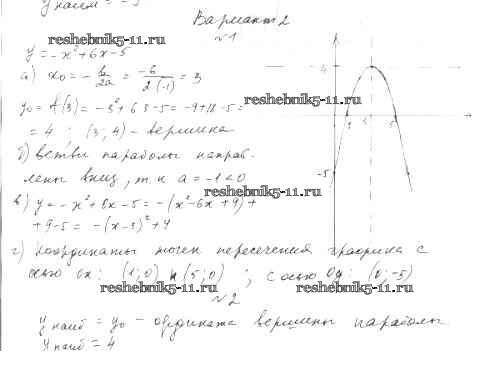 y наим = -5
Вариант 2
№1
y = -x² + 6x - 5
а) x₀ = -b/2a = -6/2·(-1) = 3
y₀ = f(3) = -3² + 6·3 - 5 = -9 + 18 - 5 =
= 4 ; (3; 4) - вершина
б) ветви параболы направ-
лены вниз, т к a = -1 < 0
в) y = -x² + 6x - 5 = -(x² - 6x + 9) +
+ 9 - 5 = -(x - 3)² + 4
г) Координаты точек пересечения графика с
осью Ox: (1; 0) и (5; 0) ; с осью Oy: (0; -5)
№2
y наиб = y₀ - ордината вершины параболы
y наиб = 4
4
1 3 5
-5
reshebnik5-11.ru
reshebnik5-11.ru
reshebnik5-11.ru
reshebnik5-11.ru
reshebnik5-11.ru